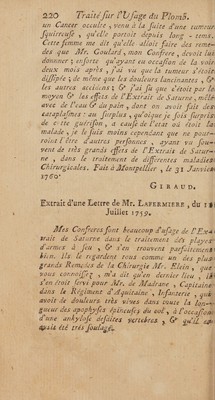 220 Traité sur l'Usage du Plomb.
un Cancer occulte, venu à la suite d'une tumeur
squireuse, qu'elle portoit depuis long-tems.
Cette femme me dit qu'elle alloit faire des remé-
des que Mr. Goulard, mon Confrere, devoit lui
donner; ensorte qu'ayant eu occasion de la voir
deux mois après, j'ai vu que la tumeur s'étoit
dissipée, de même que les douleurs lancinantes, &
les autres accidens; & j'ai sçu que c'étoit par le
moyen & les effets de l'Extrait de Saturne, mêlé
avec de l'eau & du pain, dont on avoit fait des
cataplasmes: au surplus, quoique je sois surpris
de cette guérison, à cause de l'état où étoit la
malade, je le suis moins cependant que ne pour-
roient l'être d'autres personnes, ayant vu sou-
vent de très grands effets de l'Extrait de Satur-
ne, dans le traitement de différentes maladies
Chirurgicales. Fait à Montpellier, le 31 Janvier
1760.
GIRAUD.
Extrait d'une Lettre de Mr. LAPERMIERE, du
Juillet 1759.
Mes Confreres font beaucoup d'usage de l'Ex-
trait de Saturne dans le traitement des playes
d'armes à feu, & s'en trouvent parfaitement
bien. Ils le regardent tous comme un des plus
grands Remedes de la Chirurgie Mr. Elein, que
vous connoissez, m'a dit qu'en dernier lieu, il
s'en étoit servi pour Mr. de Madrane, Capitaine
dans le Régiment d'Aquitaine, Infanterie, qui
avoit de douleurs très vives dans toute la lon-
gueur des apophyses épineuses du col, à l'occasion
d'une ankylose desdites vertebres, & qu'il en
avoit été très soulagé.